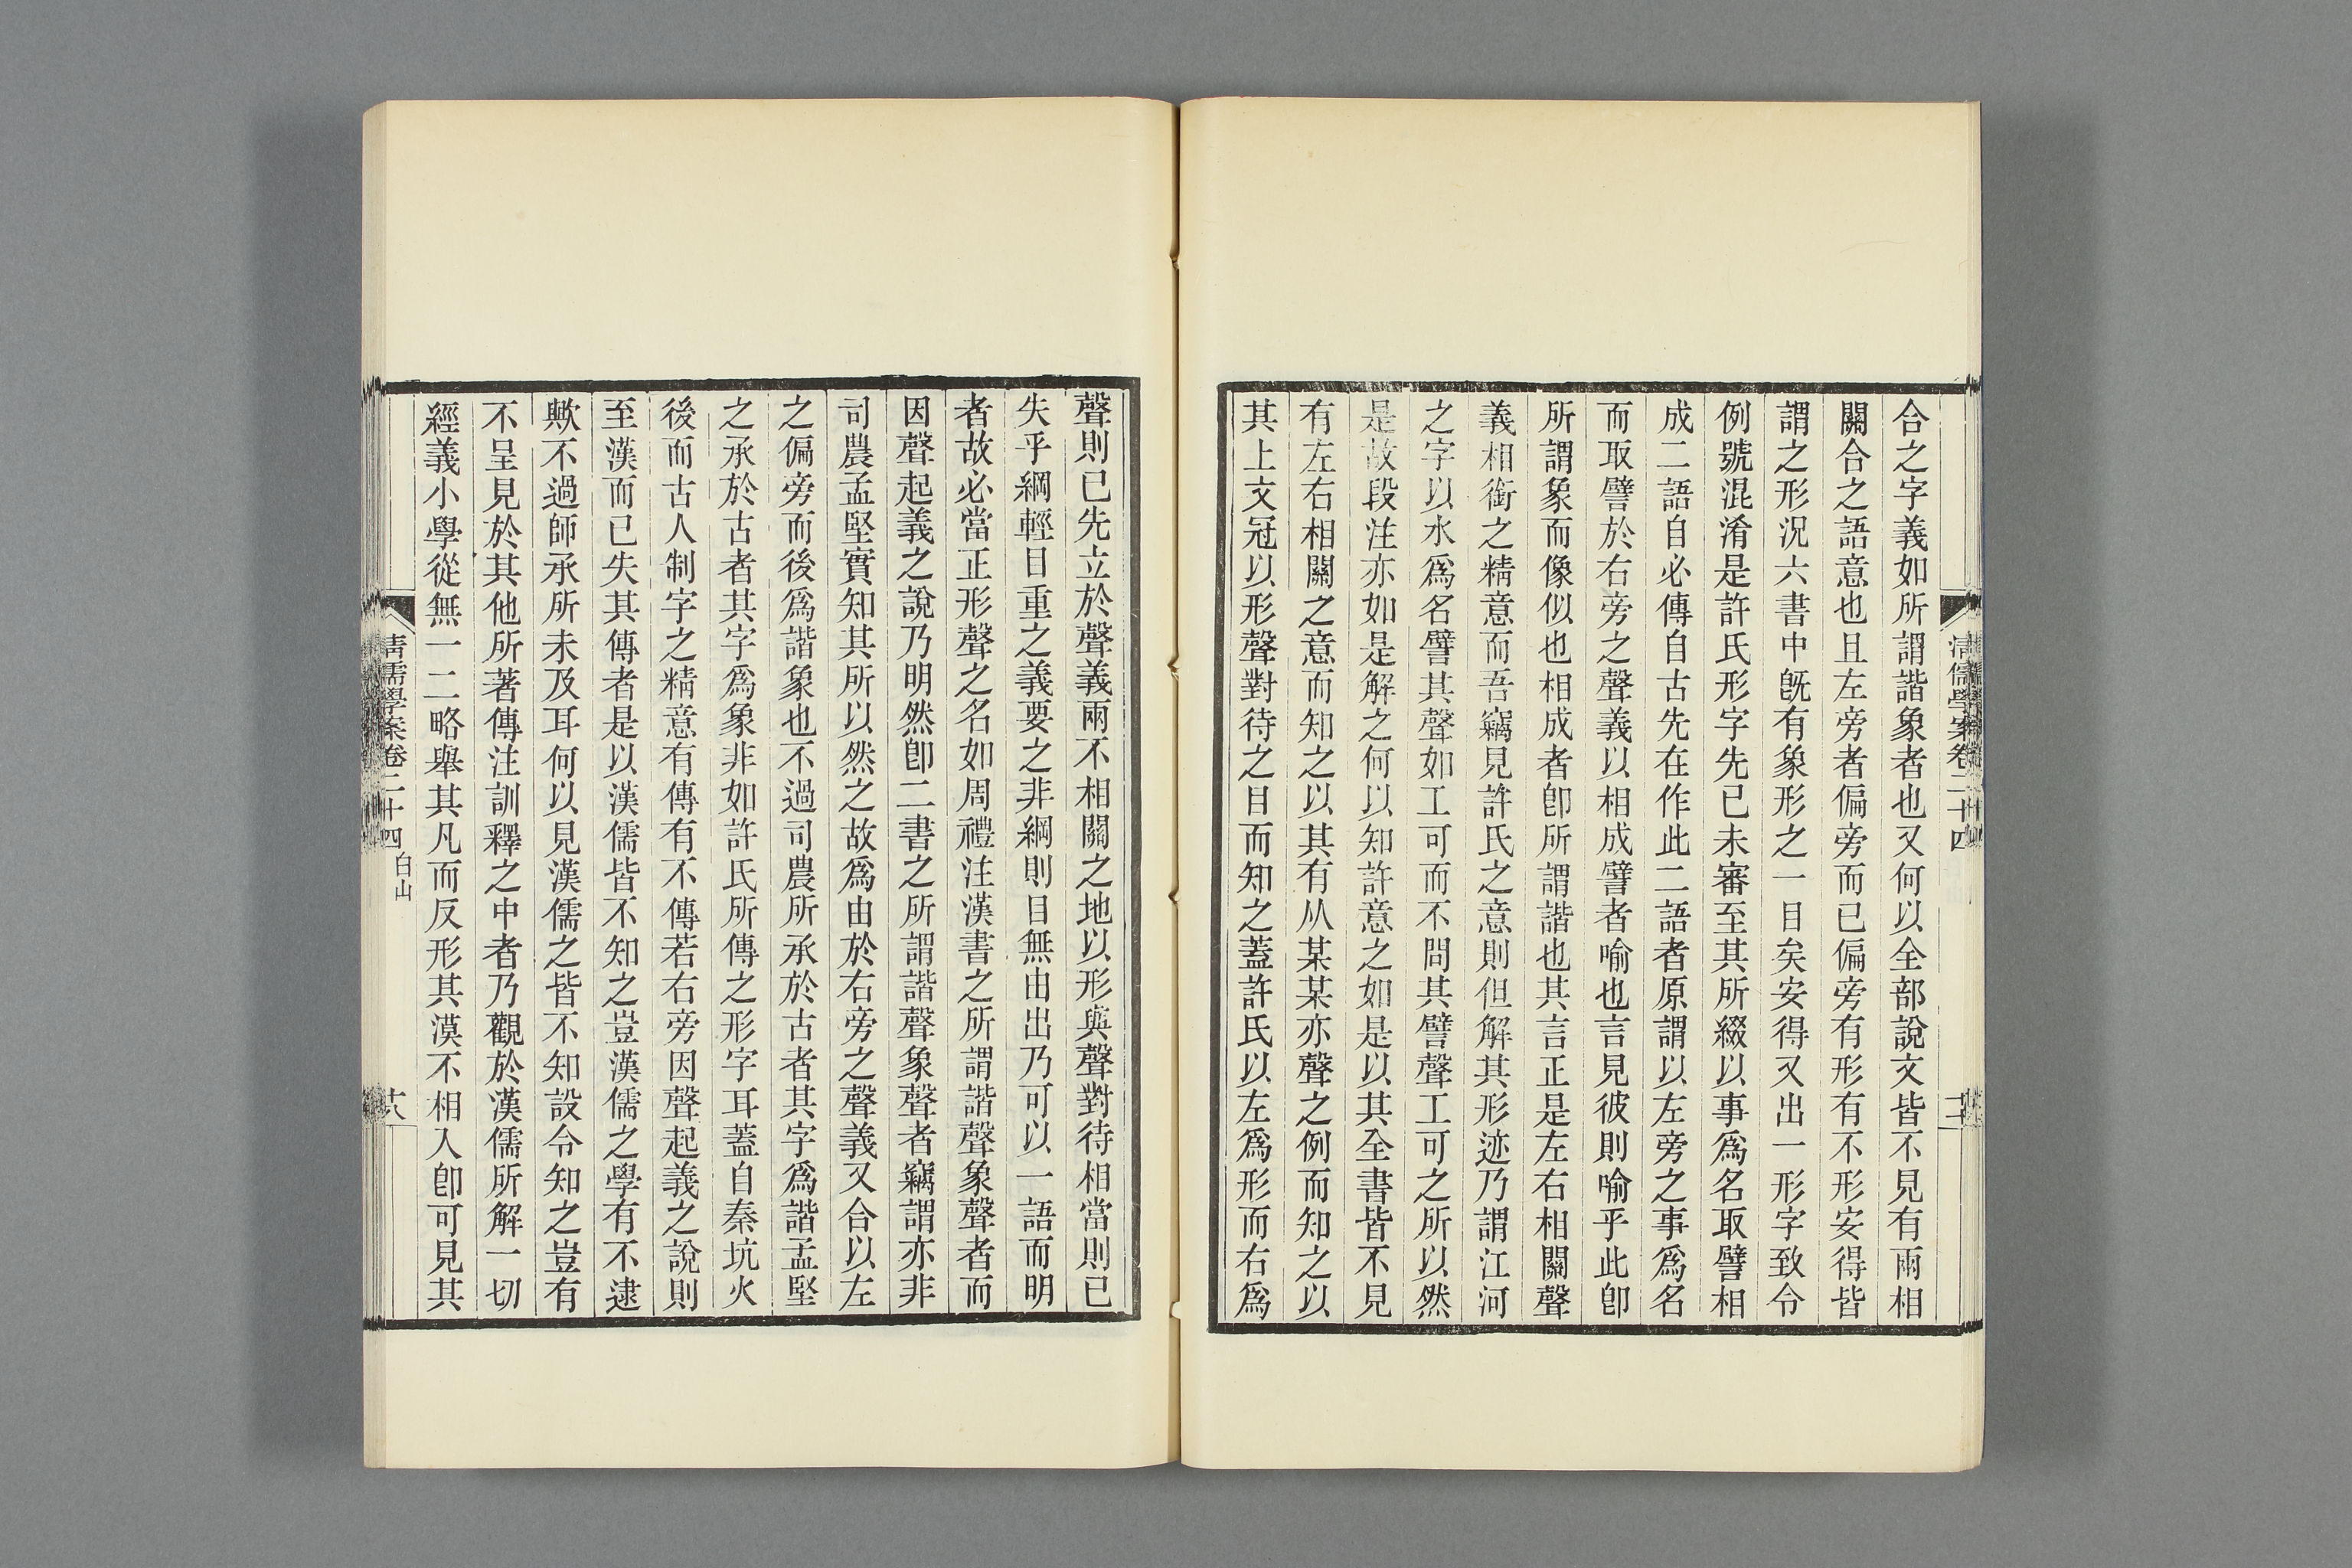 合之字義如所謂諧象者也又何以全部說文皆不見有兩相
關合之語意也且左旁者偏旁而已偏旁有形有不形安得皆
謂之形況六書中旣有象形之一目矣安得又出一形字致令
例號混淆是許氏形字先已未審至其所綴以事爲名取譬相
成二語自必傳自古先在作此二語者原謂以左旁之事爲名
而取譬於右旁之聲義以相成譬者喻也言見彼則喻乎此卽
所謂象而像似也相成者卽所謂諧也其言正是左右相關聲
義相銜之精意而吾竊見許氏之意則但解其形迹乃謂江河
之字以水爲名譬其聲如工可而不問其譬聲工可之所以然
是故段注亦如是解之何以知許意之如是以其全書皆不見
有左右相關之意而知之以其有从某某亦聲之例而知之以
其上文冠以形聲對待之目而知之蓋許氏以左爲形而右爲
聲則已先立於聲義兩不相關之地以形與聲對待相當則已
失乎綱輕目重之義要之非綱則目無由出乃可以一語而明
者故必當正形聲之名如周禮注漢書之所謂諧聲象聲者而
因聲起義之說乃明然卽二書之所謂諧聲象聲者竊謂亦非
司農孟堅實知其所以然之故爲由於右旁之聲義又合以左
之偏旁而後爲諧象也不過司農所承於古者其字爲諧孟堅
之承於古者其字爲象非如許氏所傳之形字耳蓋自秦坑火
後而古人制字之精意有傳有不傳若右旁因聲起義之說則
至漢而已失其傳者是以漢儒皆不知之豈漢儒之學有不逮
歟不過師承所未及耳何以見漢儒之皆不知設令知之豈有
不呈見於其他所著傳注訓釋之中者乃觀於漢儒所解一切
經義小學從無一二略舉其凡而反形其漠不相入卽可見其
清儒學案卷二十四 白山